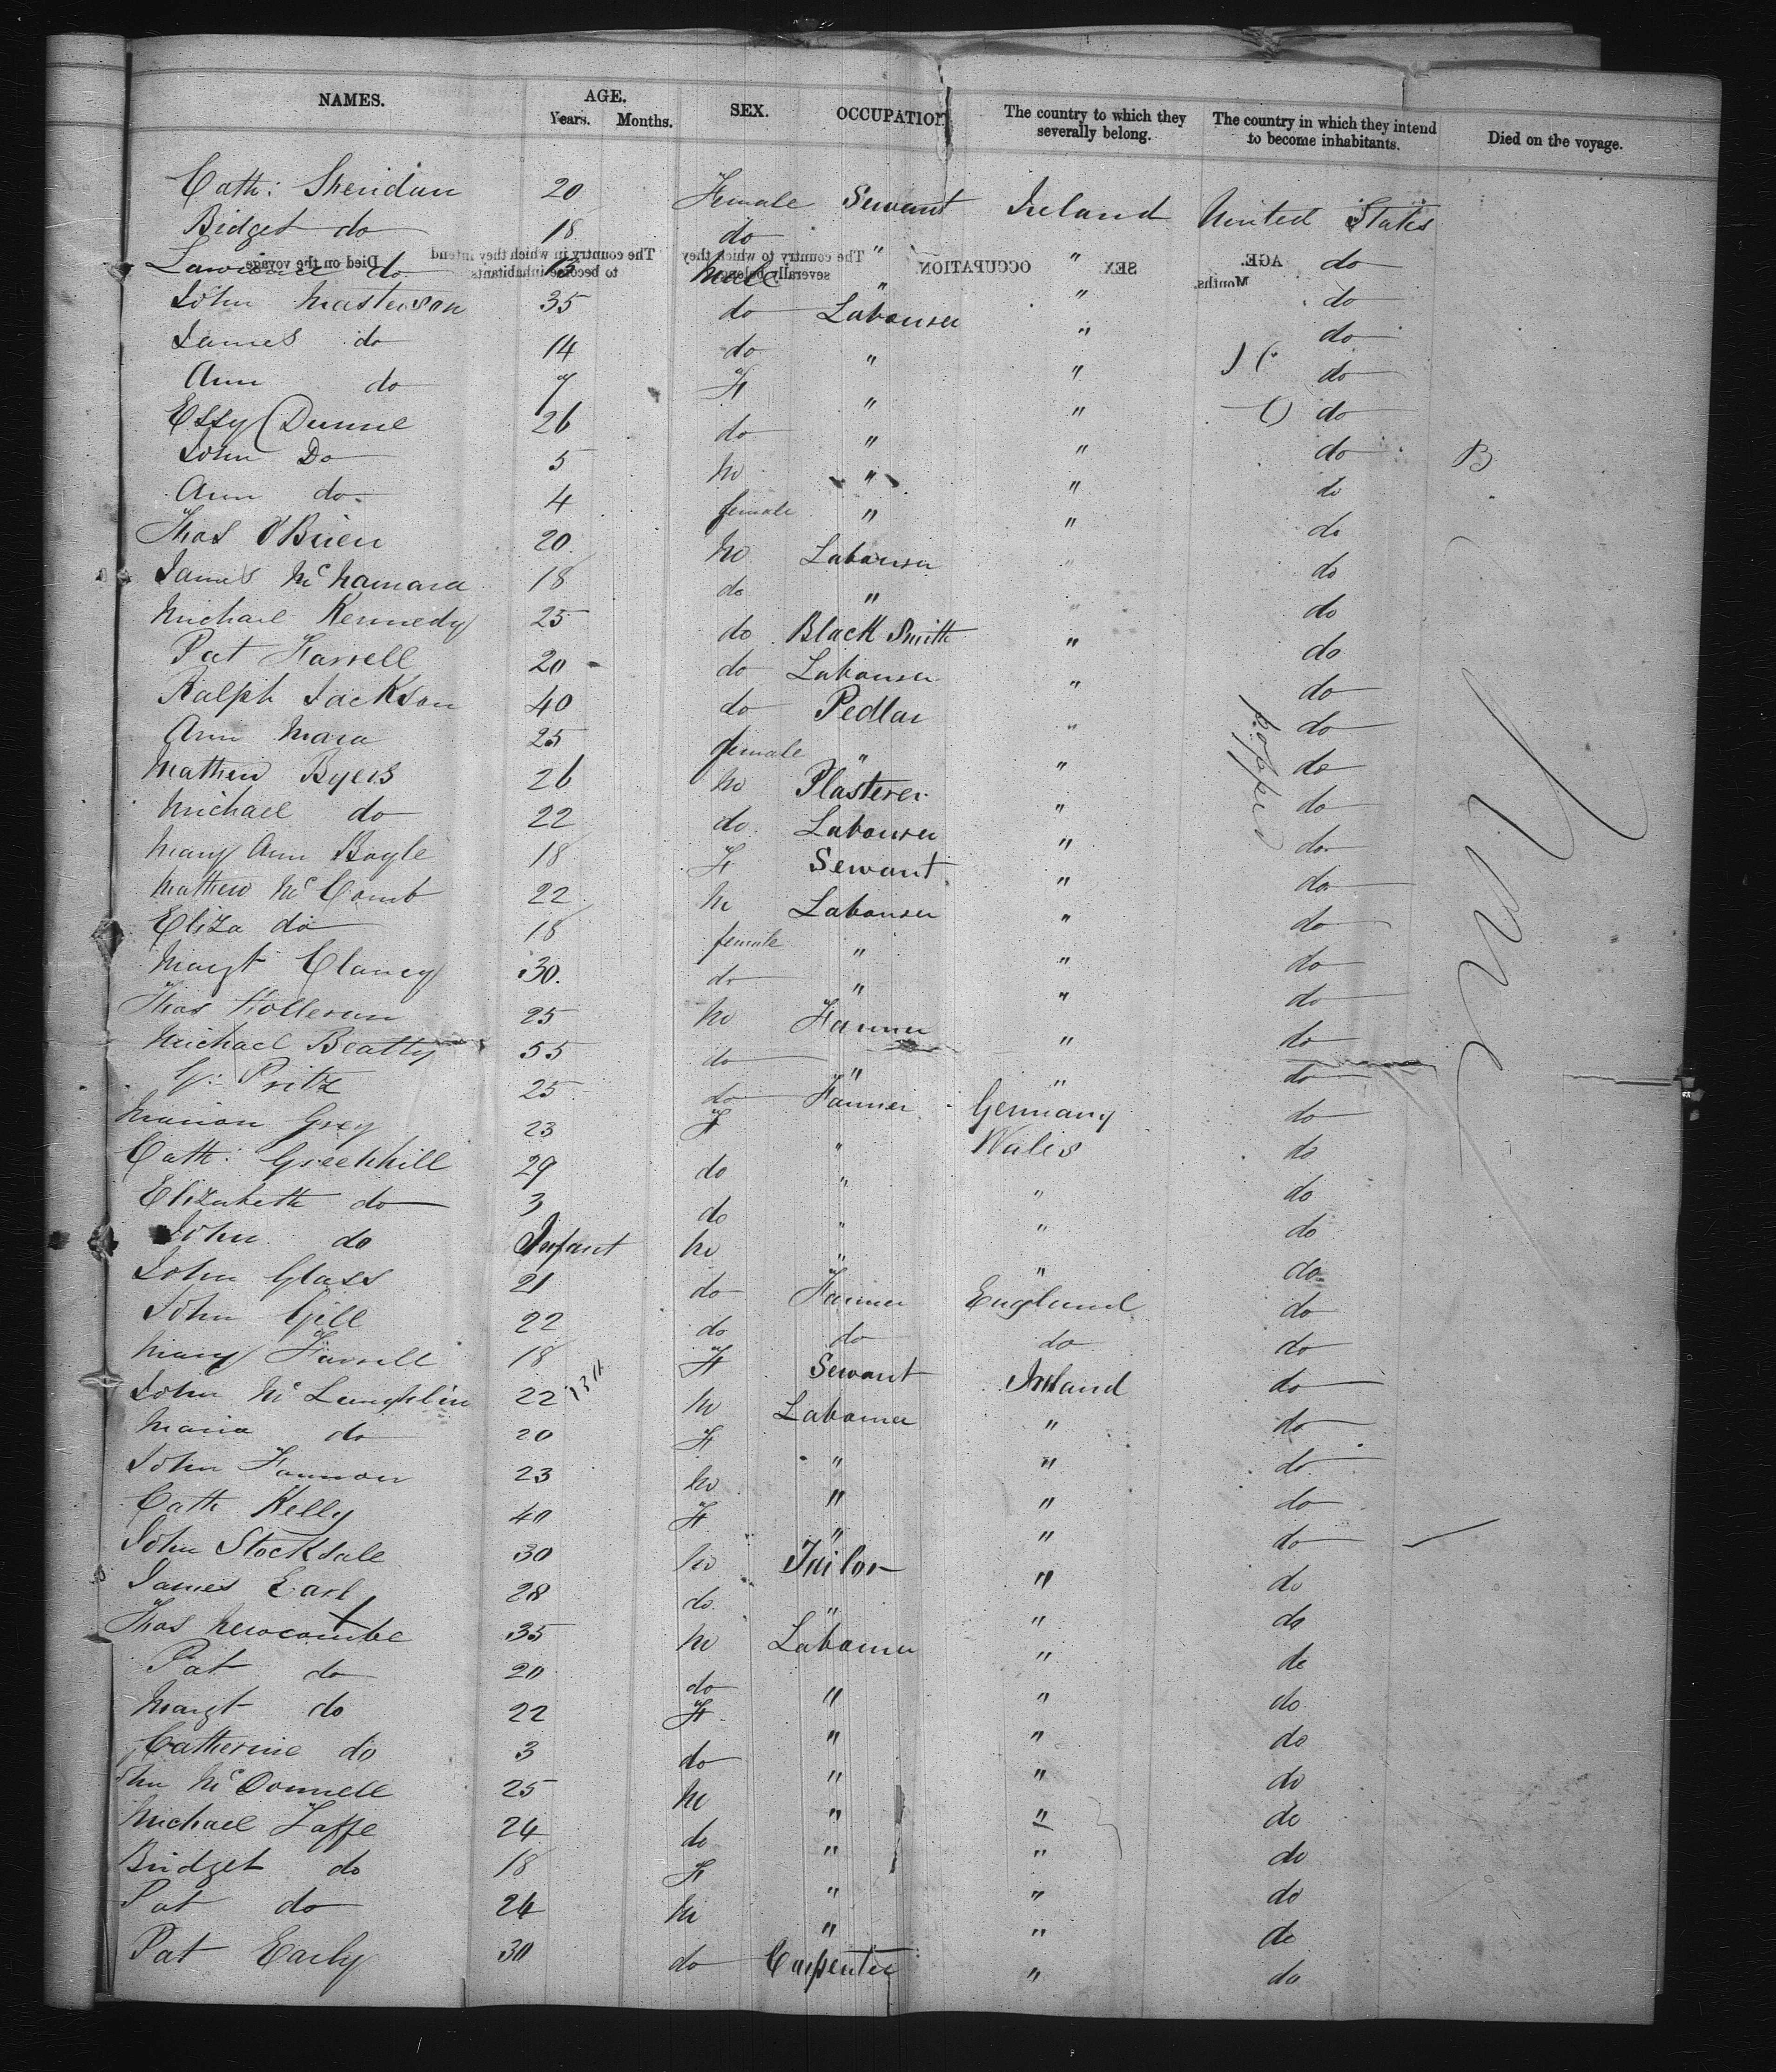 NAMES. AGE. Years. Months. SEX. OCCUPATION The country to which they severally belong. The country in which they intend to become inhabitants. Died on the voyage.
Cath: Sheridan 20 Female Servant Ireland United States
Bidget do 18 do " " do
Lawrence do Male " " do
John Masterson 35 do Labourer " do
James do 14 do " " do
Ann do 7 F " " do
Essy Dunne 26 do " " do
John Do 5 M " " do B
Ann do 4 female " " do
Thos O'Brien 20 M Labourer " do
James McNamara 18 do " " do
Michael Kennedy 25 do Black Smith " do
Pat Farrell 20 do Labourer " do
Ralph Jackson 40 do Pedlar " do
Ann Mara 25 female " " do
Mathew Byers 26 M Plasterer " do
Michael do 22 do Labourer " do
Mary Ann Boyle 18 F Servant " do
Mathew McComb 22 M Labourer " do
Eliza do 18 female " " do
Margt Clancy 30 do " " do
Thos Holleran 25 M Farmer " do
Michael Beatty 55 do " " do
G: Pritz 25 do Farmer Germany do
Marion Grey 23 F " Wales do
Cath: Greenhill 29 do " " do
Elizabeth do 3 do " " do
John do Infant M " " do
John Glass 21 do Farmer England do
John Gill 22 do do do do
Mary Farrell 18 F Servant Ireland do
John McLaughlin 22 M Labourer " do
Maria do 20 F " " do
John Hannon 23 M " " do
Cath Kelly 40 F " " do
John Stocksale 30 M Tailor " do
James Earl 28 do " " do
Thos Newcombe 35 M Labourer " do
Pat do 20 do " " do
Margt do 22 F " " do
Catherine do 3 do " " do
John McDonnell 25 M " " do
Michael Taffe 24 do " " do
Bridget do 18 F " " do
Pat do 24 M " " do
Pat Early 30 do Carpenter " do